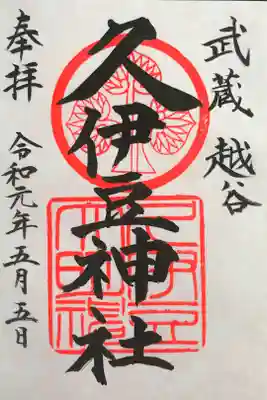 武蔵越谷
久伊豆神社
奉拝
令和元年五月五日